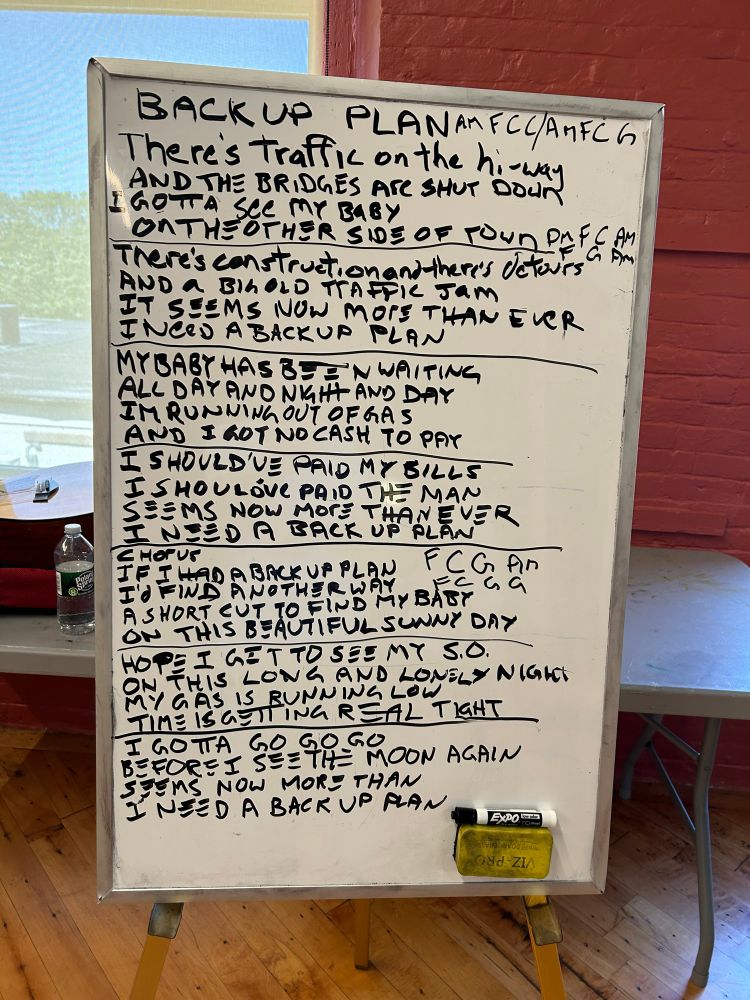 BACK UP PLAN AM F C C/AM F C G
There's Traffic on the hi-way
AND THE BRIDGES ARE SHUT DOWN
I GOTTA SEE MY BABY
ON THE OTHER SIDE OF TOWN DM F C AM
F G AM
There's construction and there's detours
AND A BIG OLD TRAFFIC JAM
IT SEEMS NOW MORE THAN EVER
I NEED A BACK UP PLAN
MY BABY HAS BEEN WAITING
ALL DAY AND NIGHT AND DAY
IM RUNNING OUT OF GAS
AND I GOT NO CASH TO PAY
I SHOULD'VE PAID MY BILLS
I SHOULD'VE PAID THE MAN
SEEMS NOW MORE THAN EVER
I NEED A BACK UP PLAN
CHORUS
IF I HAD A BACK UP PLAN F C G AM
I'D FIND ANOTHER WAY FC G G
A SHORT CUT TO FIND MY BABY
ON THIS BEAUTIFUL SUNNY DAY
HOPE I GET TO SEE MY S.O.
ON THIS LONG AND LONELY NIGHT
MY GAS IS RUNNING LOW
TIME IS GETTING REAL TIGHT
I GOTTA GO GO GO
BEFORE I SEE THE MOON AGAIN
SEEMS NOW MORE THAN
I NEED A BACK UP PLAN
EXPO
VIZ-PRO
Poland Spring